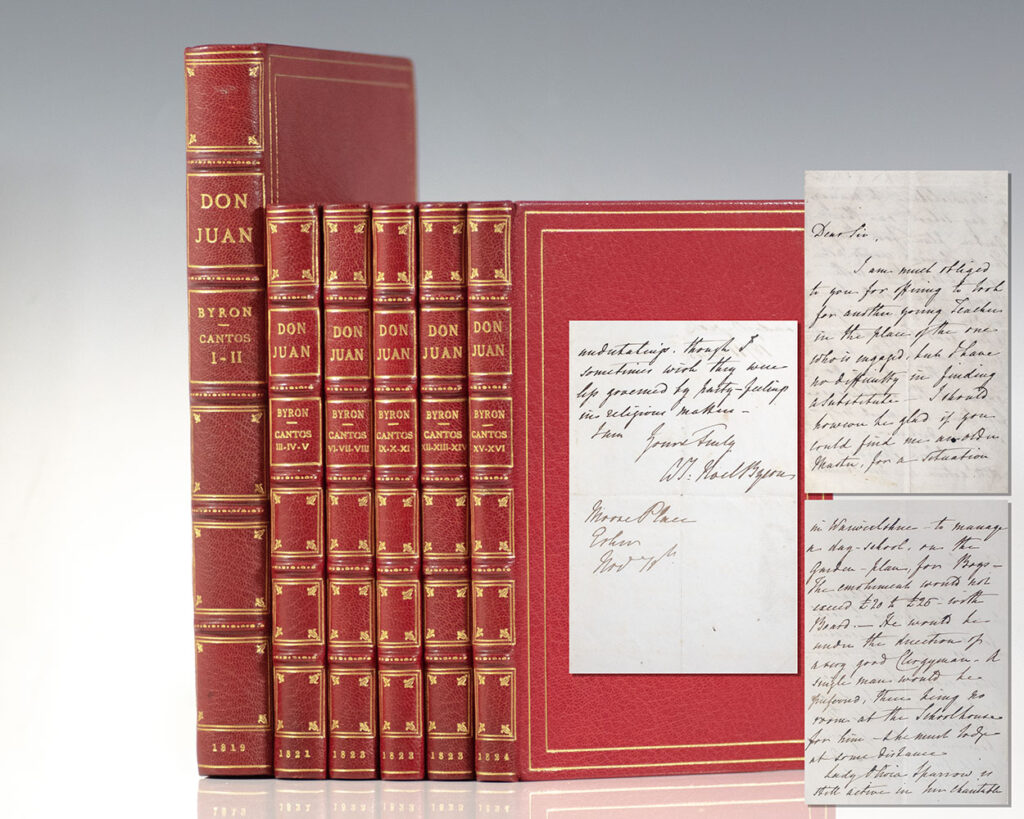 DON
JUAN
BYRON
CANTOS
I-II
1819
DON
JUAN
BYRON
CANTOS
III-IV-V
1821
DON
JUAN
BYRON
CANTOS
VI-VII-VIII
1823
DON
JUAN
BYRON
CANTOS
IX-X-XI
1823
DON
JUAN
BYRON
CANTOS
XII-XIII-XIV
1823
DON
JUAN
BYRON
CANTOS
XV-XVI
1824
Dear Sir,
I am much obliged
to you for offering to look
for another young Teacher
in the place of the one
who is engaged, but I have
no difficulty in finding
a substitute – I should
however be glad if you
could find me an older
Master, for a situation
in Warwickshire to manage
a day-school, on the
Garden-plan, for Boys –
The emolument would not
exceed £20 to £25 – with
Board. – He would be
under the direction of
a very good Clergyman – A
single man would be
preferred, there being no
room at the Schoolhouse
for him – & he must lodge
at some distance
Lady Olivia Sparrow is
still active in her charitable
undertakings, though I
sometimes wish they were
less governed by party-feelings
in religious matters –
I am
Yours Truly
Noel Byron
Moore Place
Nov